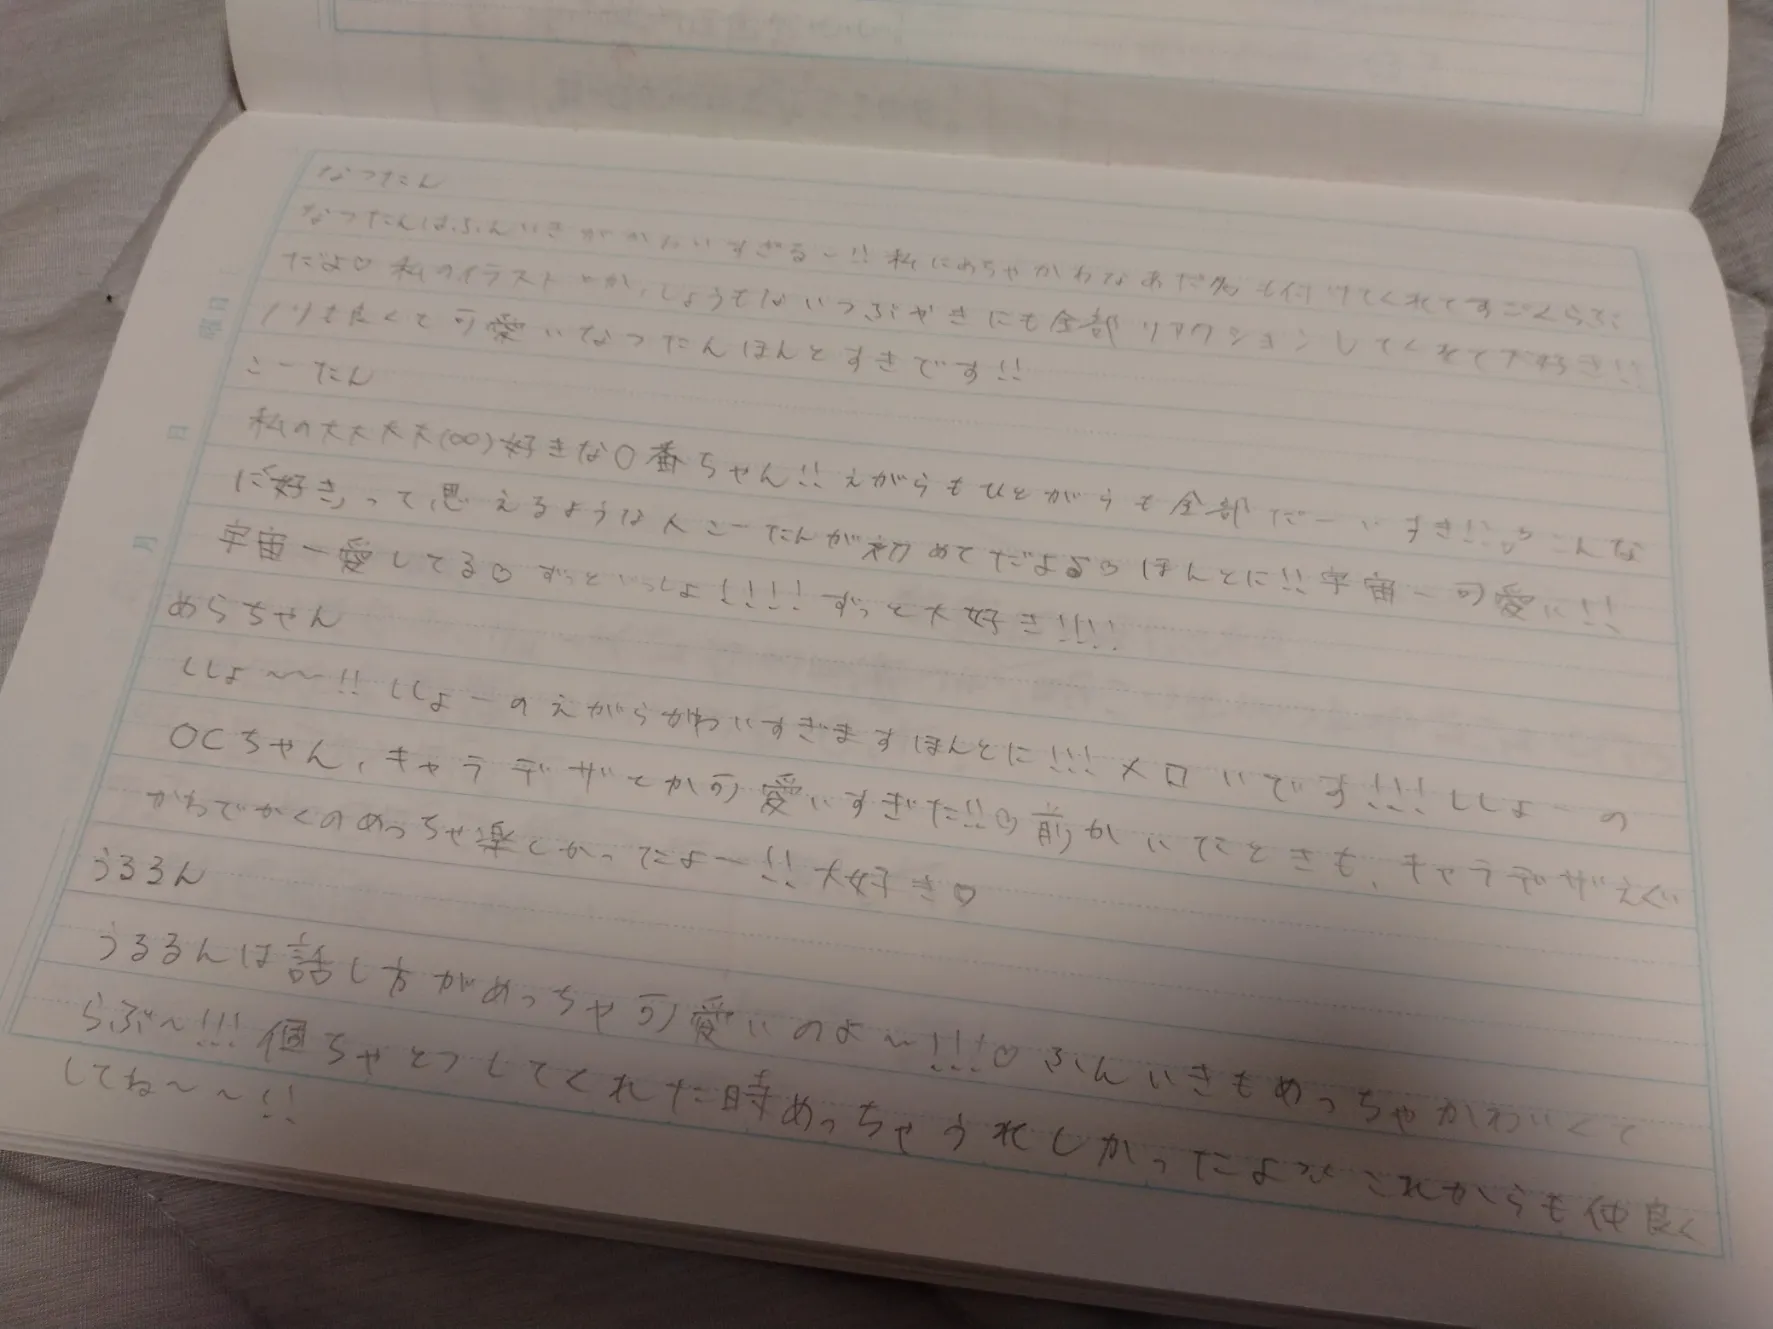 なつたん
なつたんはふんいきがかわいすぎる〜!! 私にめちゃかわなあだ名も付けてくれてすごくらぶ
だよ♡ 私のイラストとか、しょうもないつぶやきにも全部リアクションしてくれて大好き!!
ノリも良くて可愛いなつたんほんとすきです!!
こーたん
私の大大大大(∞)好きな0番ちゃん!! えがらもひとがらも全部だーいすき!!♡ こんな
に好きって思えるような人こーたんが初めてだよ♡ ほんとに!! 宇宙一可愛い!!
宇宙一愛してる♡ ずっといっしょ!!!! ずっと大好き!!!!
めらちゃん
ししょ〜〜!! ししょーのえがらかわいすぎますほんとに!!! メロいです!!! ししょーの
OCちゃん、キャラデザとか可愛いすぎた!!♡ 前かいたときも、キャラデザえぐい
かわでかくのめっちゃ楽しかったよ〜!! 大好き♡
うるるん
うるるんは話し方がめっちゃ可愛いのよ〜!!!♡ ふんいきもめっちゃかわいくて
らぶ〜!!! 個ちゃとつしてくれた時めっちゃうれしかったよ これからも仲良く
してね〜〜!!
月
日
曜日